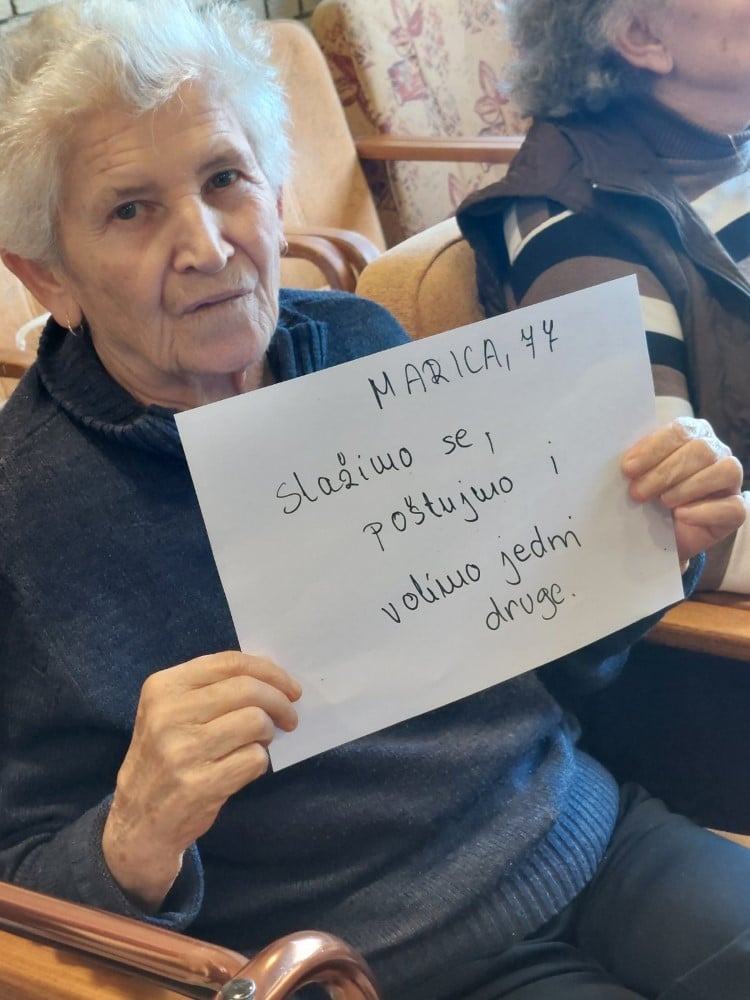 MARICA, 77
Slažimo se,
poštujmo i
volimo jedni
druge.